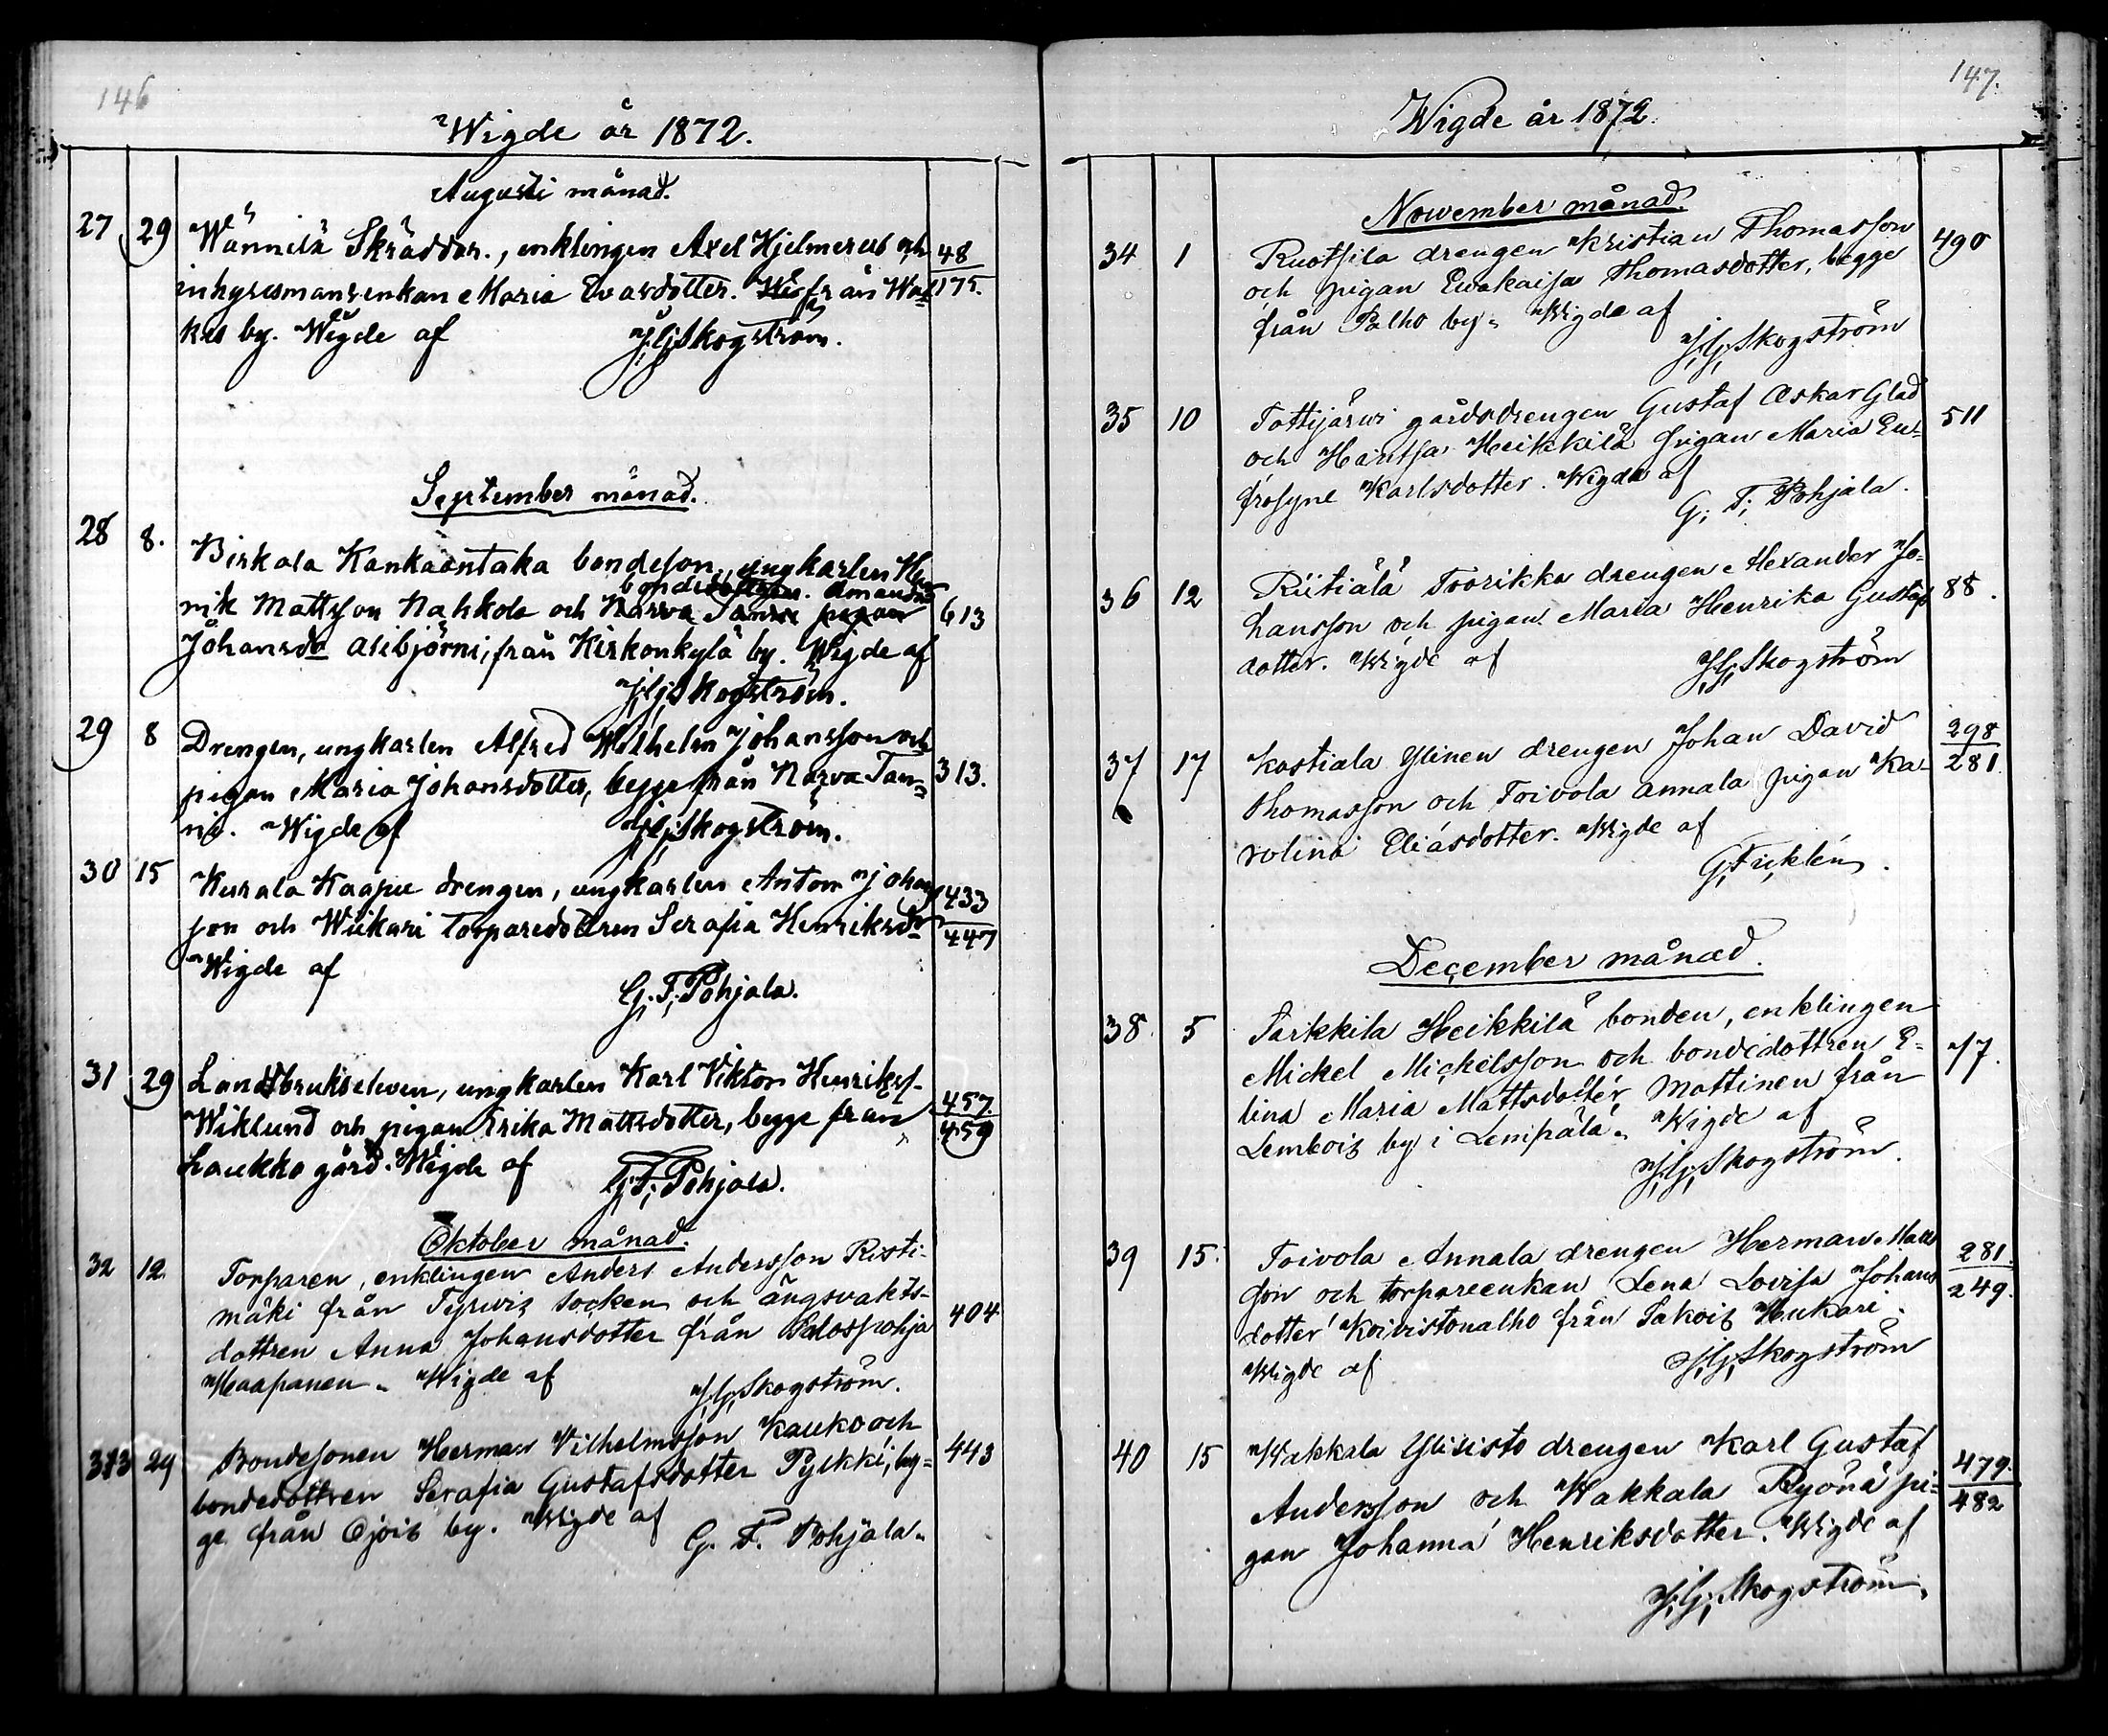 146
Wigde år 1872.
Augusti månad.
27 29 Wännilä Skräddar., enklingen Axel Hjelmerus och 48
inhysesmansenkan Maria Evasdotter. från Wak- 175.
kis by. Wigde af J.G. Skogström.
September månad.
28 8. Birkala Kankaantaka bondeson, ungkarlen Hen-
bondedottren. Amanda
rik Mattsson Nahkola och Narva Tanni pigan 613
Johansdr Alibjörni, från Kirkonkylä by. Wigde af
J.G. Skogström.
29 8 Drengen, ungkarlen Alfred Wilhelm Johansson och
pigan Maria Johansdotter, begge från Narva Tan- 313.
ni. Wigde af J.G. Skogström.
30 15 Kurala Kaapu drengen, ungkarlen Anton Johans- 433
son och Wiikari torparedottren Serafia Henriksdr 447
Wigde af
G. F. Pohjala.
31 29 Landtbrukseleven, ungkarlen Karl Viktor Henrikss.
Wiklund och pigan Erika Mattsdotter, begge från 457
459
Laukko gård. Wigde af G. F. Pohjala.
Oktober månad.
32 12. Torparen, enklingen Anders Andersson Risti-
mäki från Tyrwis socken och ängsvakts-
dottren Anna Johansdotter från Palospohja 404
Haapanen. Wigde af J.G. Skogström.
33 29 Bondesonen Herman Vilhelmsson Kauko och
bondedottren Serafia Gustafsdotter Pylkki, beg- 443
ge från Ojois by. Wigde af G. F. Pohjala.
147.
Wigde år 1872.
November månad.
34 1 Ruotsila drengen Kristian Thomasson 490
och pigan Evakaisa Thomasdotter, begge
från Palho by. Wigde af
J.G. Skogström
35 10 Tottijärwi gårdsdrengen Gustaf Oskar Glad 511
och Haintsa Heikkilä pigan Maria Eu-
frosyne Karlsdotter. Wigde af
G. F. Pohjala.
36 12 Riitiälä Toorikka drengen Alexander Jo- 88.
hansson och pigan Maria Henrika Gustafs
dotter. Wigde af J.G. Skogström
37 17 Kostiala Ylinen drengen Johan David 298
Thomasson och Toivola Annala pigan Ka- 281
rolina Eliasdotter. Wigde af
G. Fricklén.
December månad.
38 5 Sarkkila Heikkilä bonden, enklingen
Mickel Mickelsson och bondedottren E- 77.
lina Maria Mattsdotter Mattinen från
Lembois by i Lempälä. Wigde af
J.G. Skogström.
39 15. Toivola Annala drengen Herman Matts 281.
son och torpareenkan Lena Lovisa Johans 249.
dotter Koivistonalho från Sakois Hukari.
Wigde af J.G. Skogström
40 15 Wakkala Ylisisto drengen Karl Gustaf 479.
Andersson och Wakkala Ryönä pi- 482
gan Johanna Henriksdotter. Wigde af
J.G. Skogström.